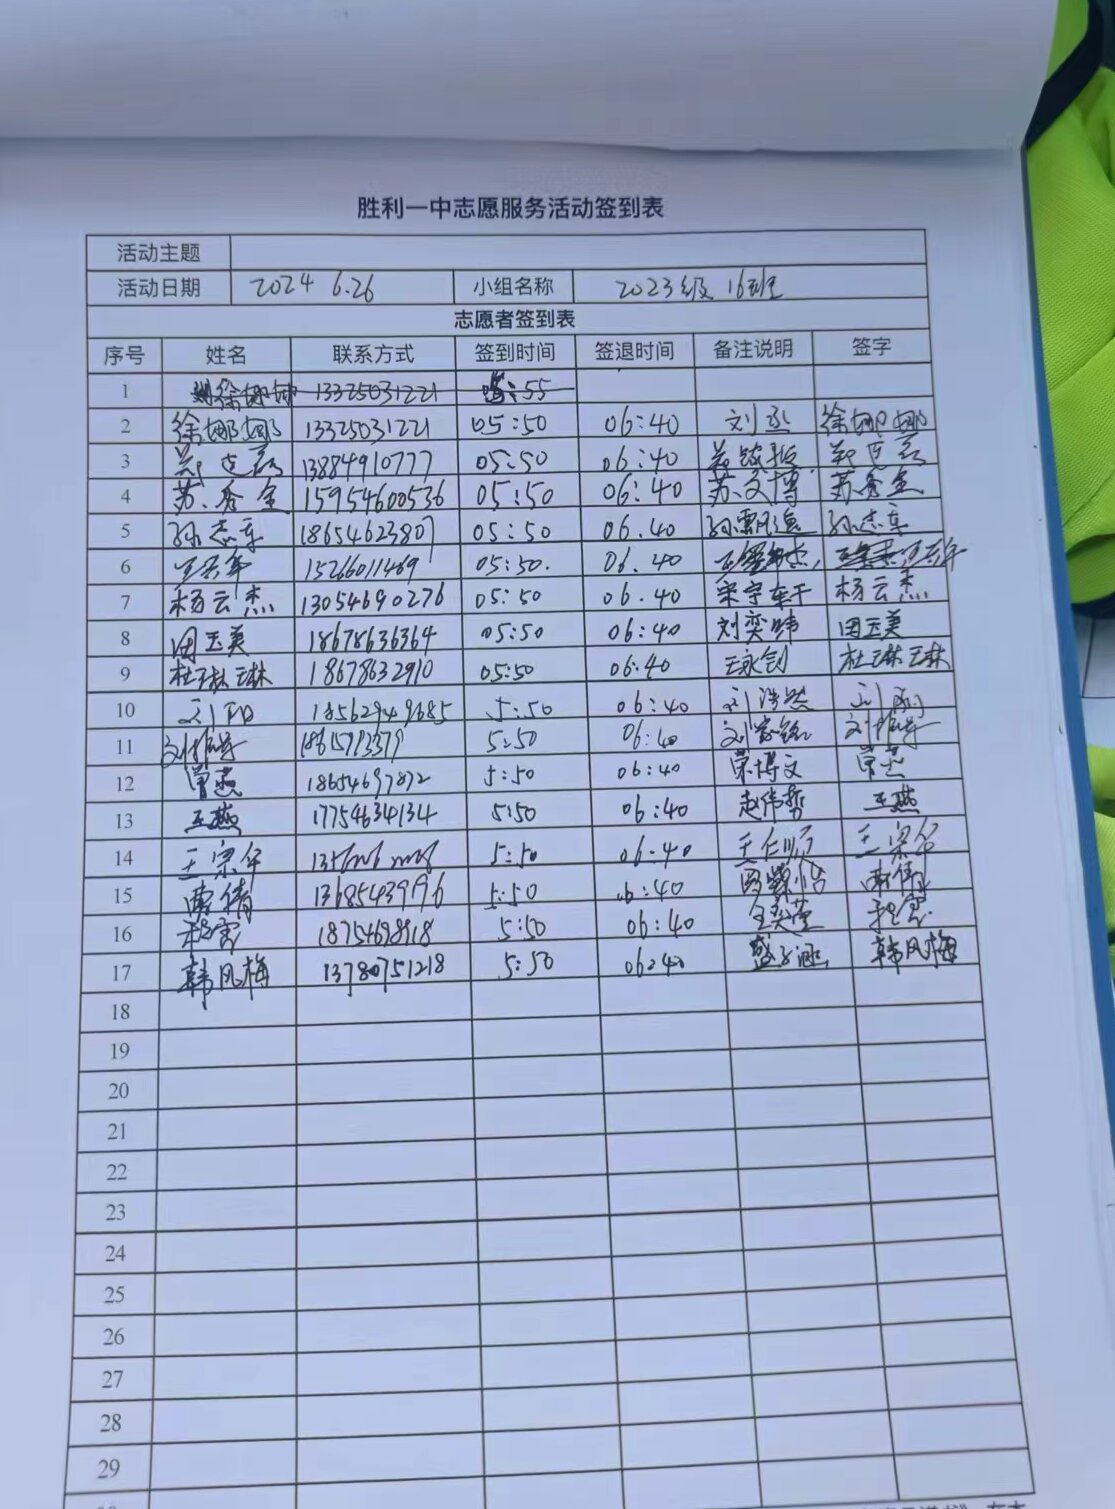 胜利一中志愿服务活动签到表
活动主题
活动日期 2024 6.26 小组名称 2023级 16班
志愿者签到表
序号 姓名 联系方式 签到时间 签退时间 备注说明 签字
1 徐娜娜 13325031221 :55
2 徐娜娜 13325031221 05:50 06:40 刘丞 徐娜娜
3 13884910777 05:50 06:40
4 苏秀全 15954600536 05:50 06:40 苏文博 苏秀全
5 孙志军 18654623807 05:50 06.40 孙飘逸 孙志军
6 15266011469 05:50. 06.40
7 杨云杰 13054690276 05:50 06.40 杨云杰
8 田玉美 18678636364 05:50 06:40 刘奕玮 田玉美
9 杜琳琳 18678632910 05:50 06:40 王永钊 杜琳琳
10 刘阳 18562949685 5:50 06:40 刘浩然 刘阳
11 5:50 06:40
12 曾燕 18654697872 5:50 06:40 荣博文 曾燕
13 王燕 17754634134 5:50 06:40 赵伟哲 王燕
14 王宗华 5:50 06:40 王仁顺 王宗华
15 13685439796 5:50 06:40
16 程霞 5:50 06:40 程霞
17 韩风梅 13780751218 5:50 06:40 韩风梅
18
19
20
21
22
23
24
25
26
27
28
29